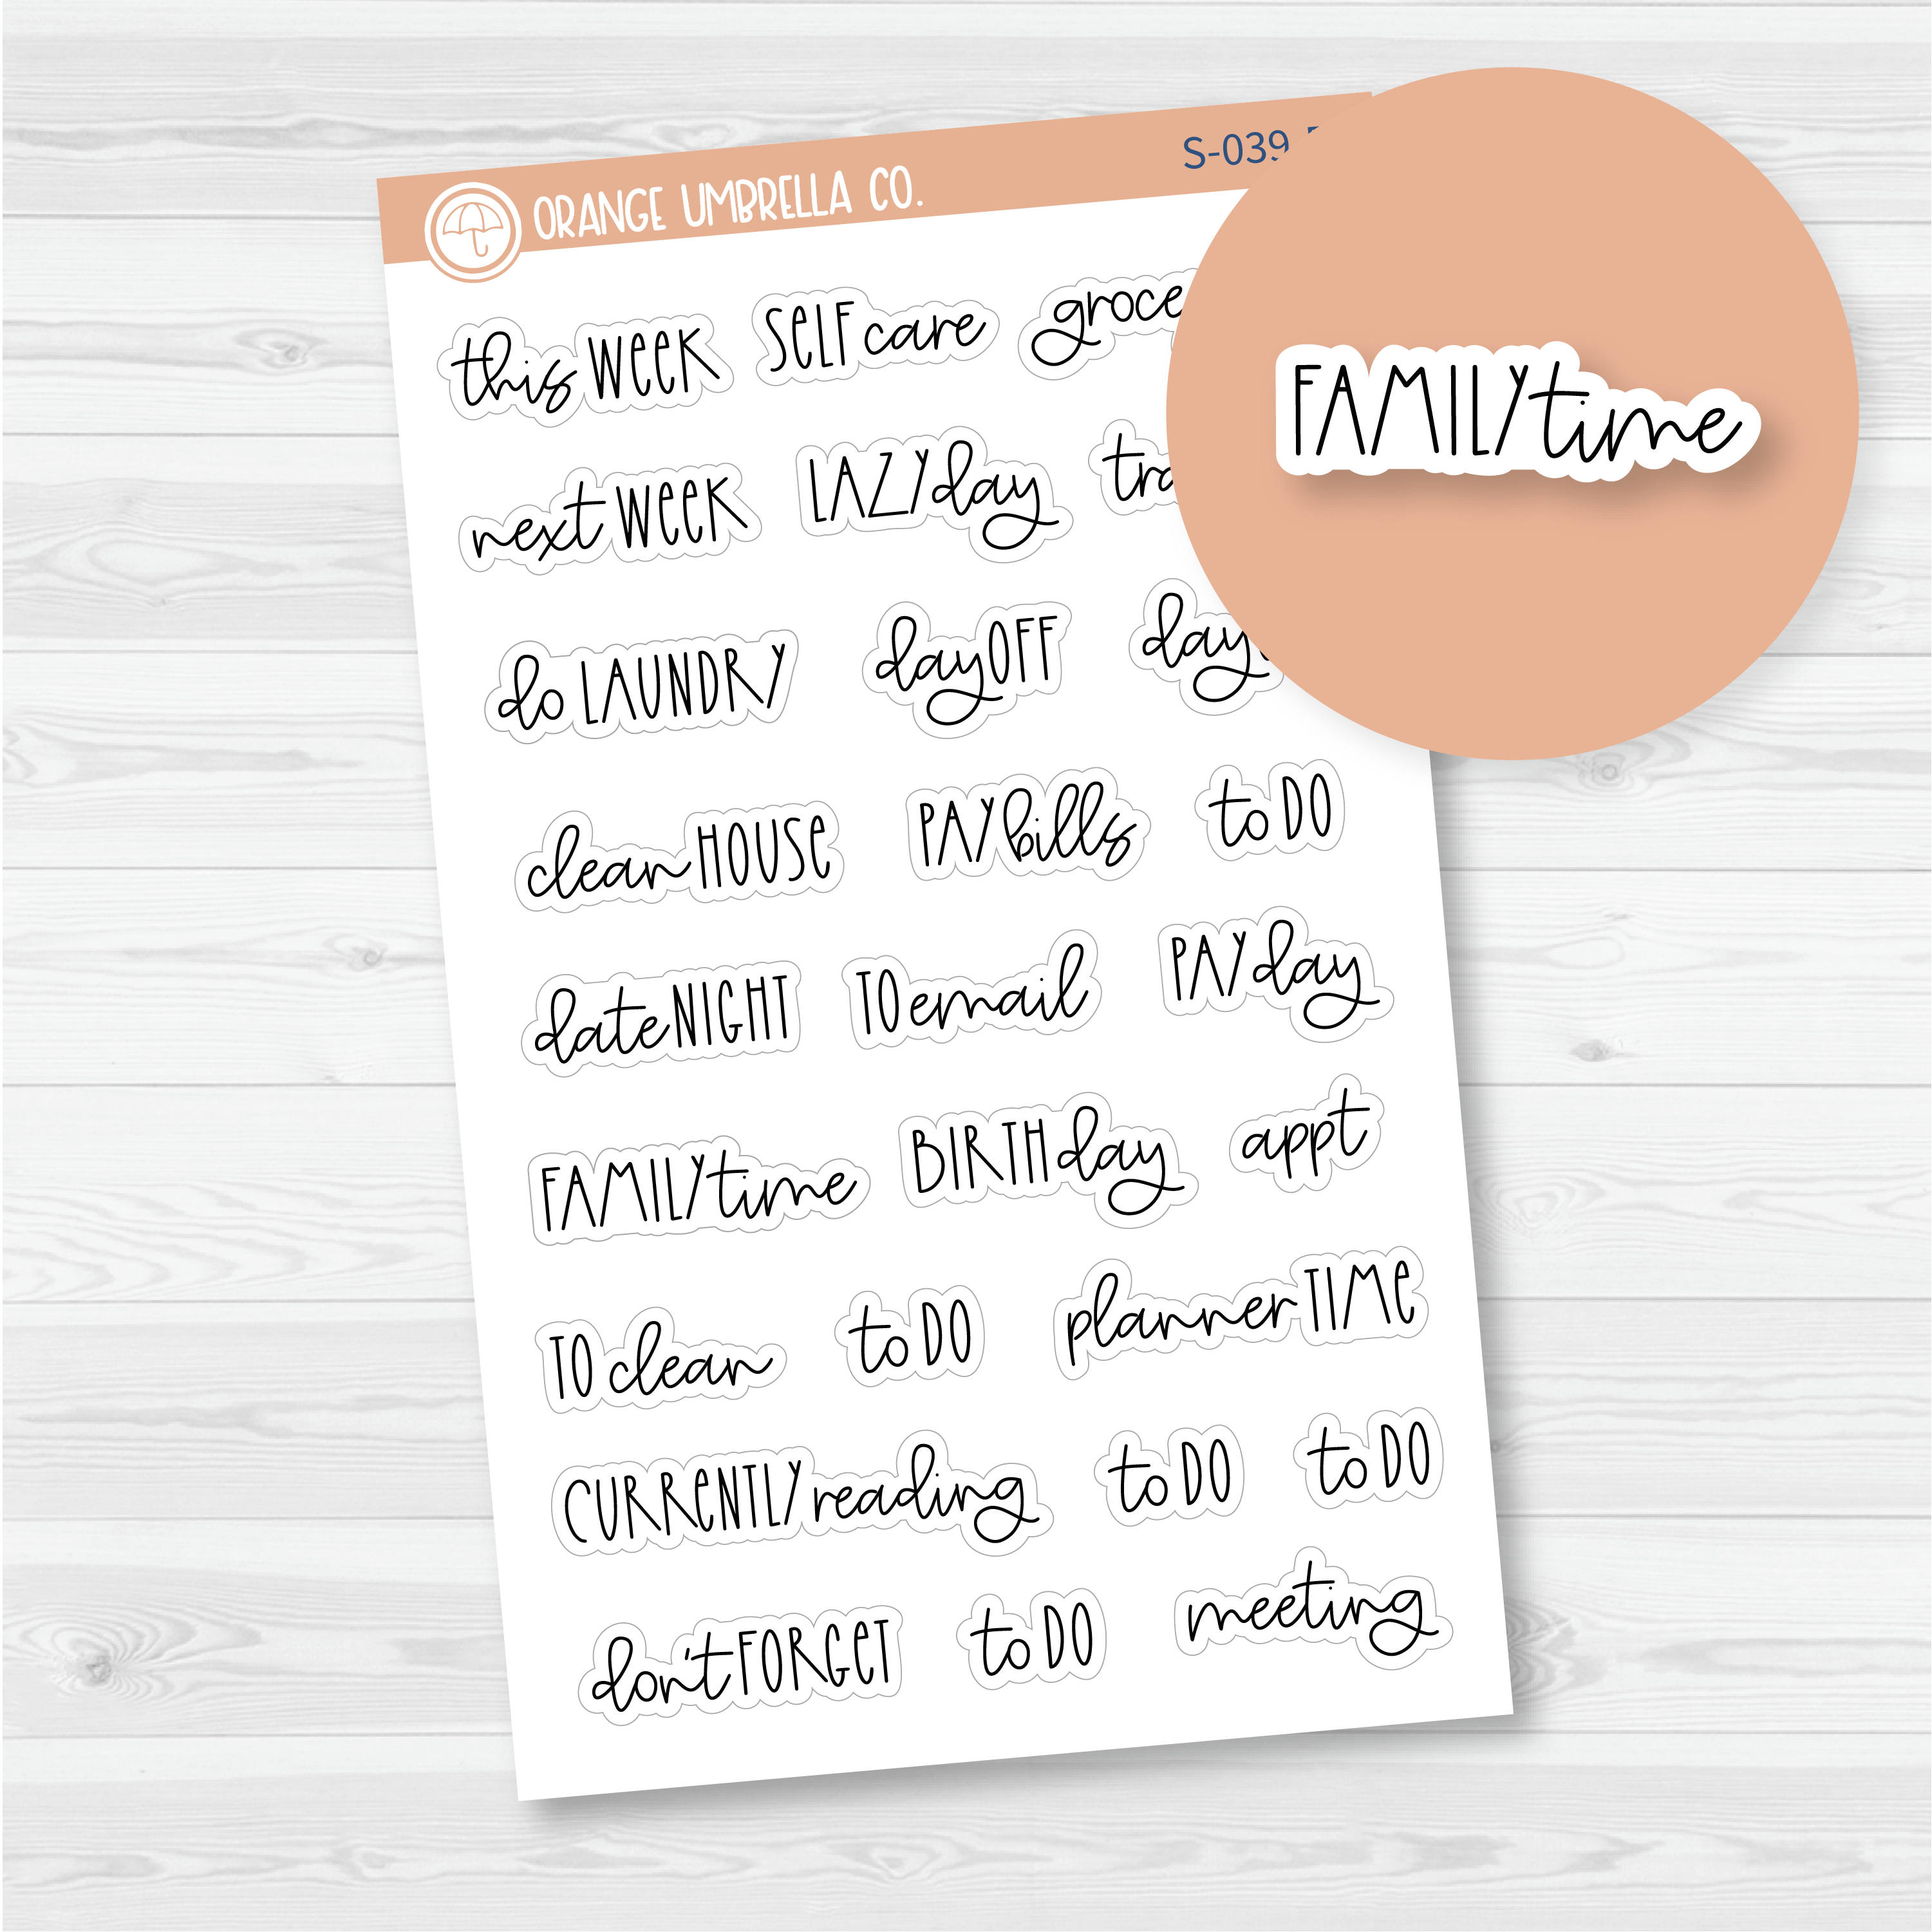 ORANGE UMBRELLA CO.
S-039
this WEEK SELF care
next WEEK LAZY day
do LAUNDRY day OFF day
clean HOUSE PAY bills to DO
date NIGHT TO email PAY day
FAMILY time BIRTH day appt
TO clean to DO planner TIME
CURRENTLY reading to DO to DO
don't FORGET to DO meeting
FAMILY time